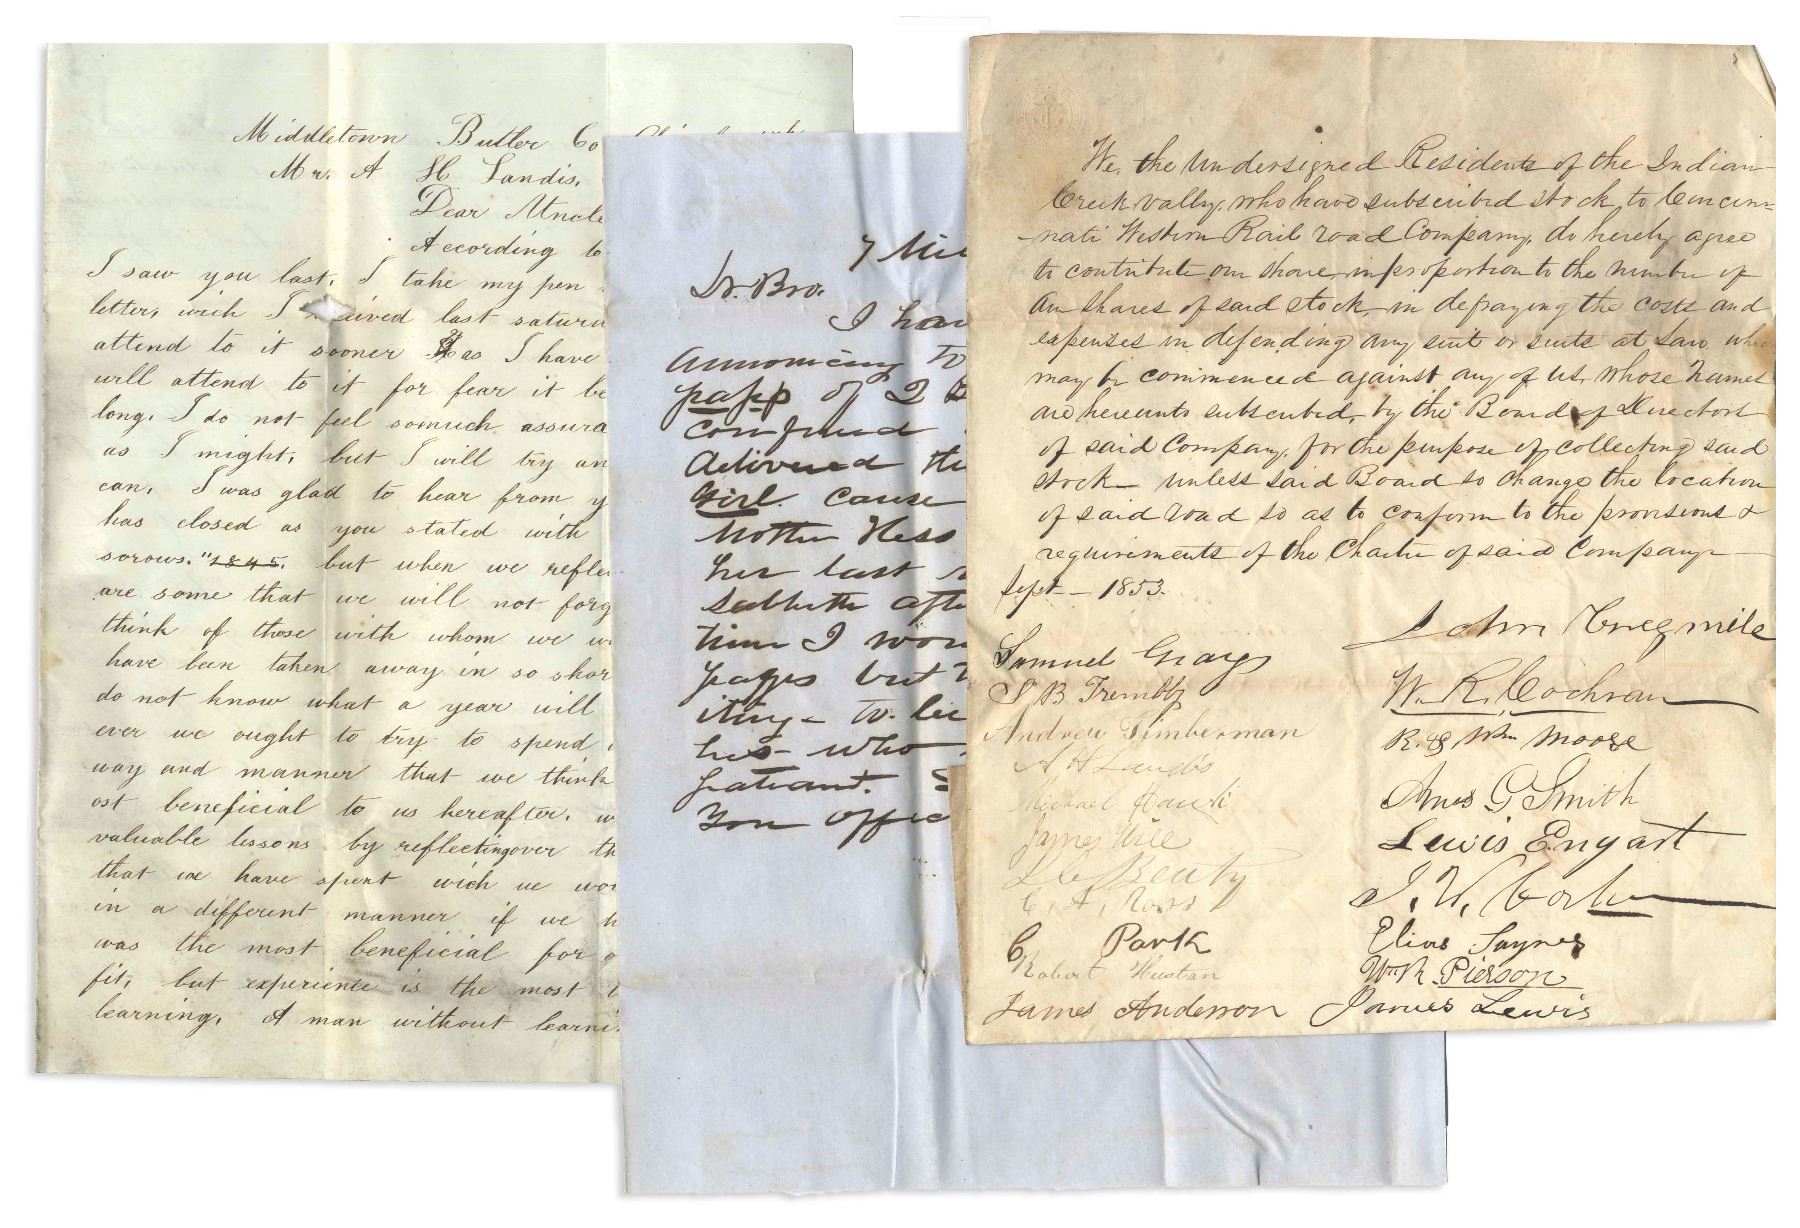 Middletown Butler Co
Mr. A H Landis,
Dear Uncle
According to
I saw you last. I take my pen
letter, wich I received last saturd
attend to it sooner as I have
will attend to it for fear it be
long. I do not feel somuch assura
as I might, but I will try an
can. I was glad to hear from y
has closed as you stated with
sorows. "1845. but when we refle
are some that we will not forg
think of those with whom we w
have been taken away in so shor
do not know what a year will
ever we ought to try to spend
way and manner that we think
ost beneficial to us hereafter. w
valuable lessons by reflectingover th
that we have spent wich we wou
in a different manner if we h
was the most beneficial for o
fit, but experience is the most
learning. A man without learni
7 Mil
Dr. Bro.
I hav
Announcing to
papp of 2 D
confined
delivered the
Girl cause
Mother Hess
her last
Sabbath afte
time I wou
pages but
iting - to
his who
patiant.
You offic
We, the Undersigned Residents of the Indian
Creek vally, who have subscribed stock, to Concin-
nati Western Rail road Company, do hereby agree
to contribute our share, in proportion to the number of
our shares of said stock, in defraying the costs and
expenses in defending any suit or suits at Law, whi
may be commenced against any of us, whose names
are hereunto subscribed, by the Board of Directors
of said Company, for the purpose of collecting said
stock - unless said Board so change the location
of said road so as to conform to the provisions &
requirements of the Charter of said Company
Sept - 1853.
John Kregmile
Samuel Graigs
W. R. Cochran
S B Trembly
R. & Wm Moore
Andrew Timberman
A H Landis
Amos G Smith
Michael
James Hill
Lewis Engart
L C Beaty
C. A. Ross
J. W.
C Park
Elias Saynes
Robert Hustan
Wm R. Pierson
James Anderson
James Lewis